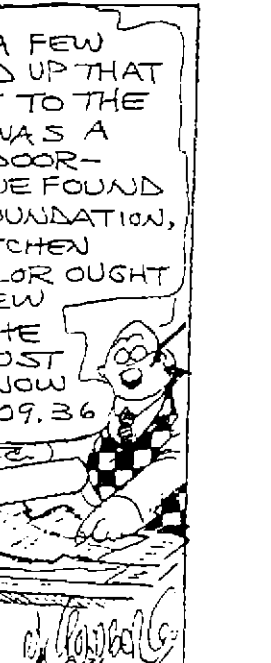 A FEW
D UP THAT
T TO THE
WAS A
DOOR-
VE FOUND
OUNDATION,
TCHEN
LOR OUGHT
EW
HE
OST
NOW
09.36